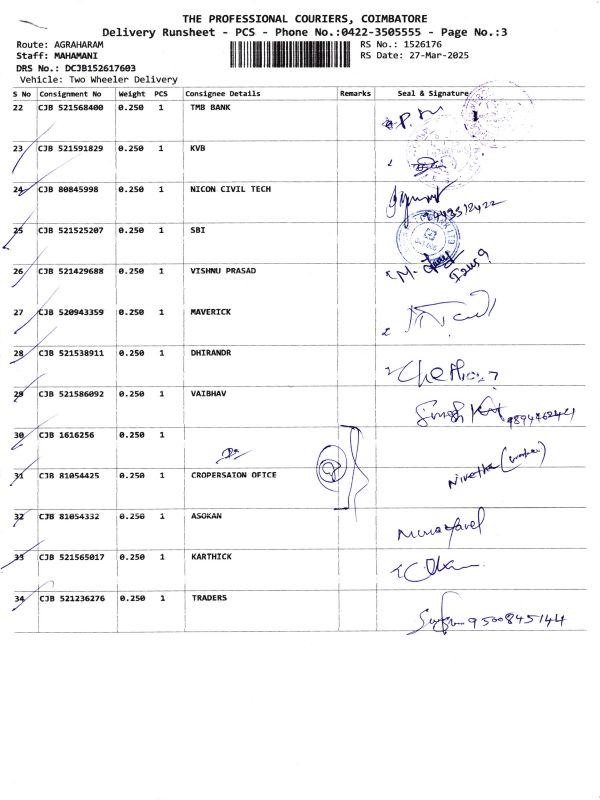 THE PROFESSIONAL COURIERS, COIMBATORE
Delivery Runsheet - PCS - Phone No.:0422-3505555 - Page No.:3
Route: AGRAHARAM RS No.: 1526176
Staff: MAHAMANI RS Date: 27-Mar-2025
DRS No.: DCJB152617603
Vehicle: Two Wheeler Delivery
S No Consignment No Weight PCS Consignee Details Remarks Seal & Signature
22 CJB 521568400 0.250 1 TMB BANK
23 CJB 521591829 0.250 1 KVB
24 CJB 80845998 0.250 1 NICON CIVIL TECH
25 CJB 521525207 0.250 1 SBI
26 CJB 521429688 0.250 1 VISHNU PRASAD
27 CJB 520943359 0.250 1 MAVERICK
28 CJB 521538911 0.250 1 DHIRANDR
29 CJB 521586092 0.250 1 VAIBHAV
30 CJB 1616256 0.250 1
31 CJB 81054425 0.250 1 CROPERSAION OFICE Nivetha
32 CJB 81054332 0.250 1 ASOKAN
33 CJB 521565017 0.250 1 KARTHICK
34 CJB 521236276 0.250 1 TRADERS
9500845144